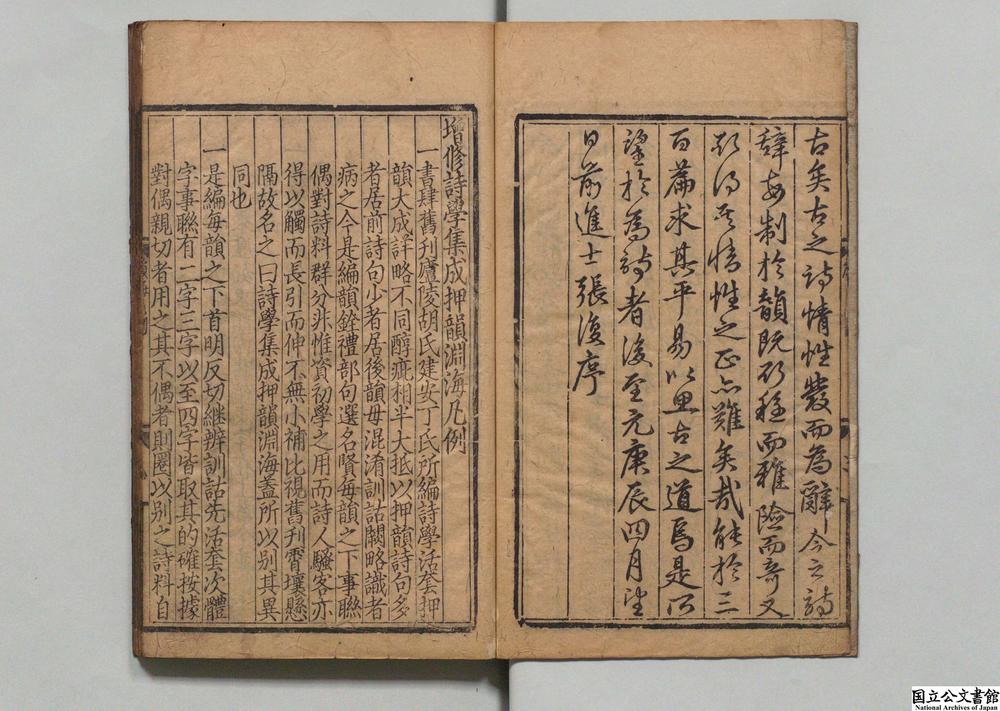 古矣古之詩情性發而為辭今之詩
辭每制於韻既欲穏而雅險而奇又
欲得其情性之正亦難矣哉能於三
百篇求其平易以思古之道焉是所
望於為詩者後至元庚辰四月望
日前進士張復序
增修詩學集成押韻淵海凡例
一書肆舊刊廬陵胡氏建安丁氏所編詩學活套押
韻大成詳略不同醇疵相半大抵以押韻詩句多
者居前詩句少者居後韻毋混淆訓詁闕略識者
病之今是編韻銓禮部句選名賢每韻之下事聯
偶對詩料群分非惟資初學之用而詩人騷客亦
得以觸而長引而伸不無小補比視舊刊霄壤懸
隔故名之曰詩學集成押韻淵海蓋所以別其異
同也
一是編每韻之下首明反切継辨訓詁先活套次體
字事聯有二字三字以至四字皆取其的確按據
對偶親切者用之其不偶者則圈以別之詩料自
国立公文書館
National Archives of Japan